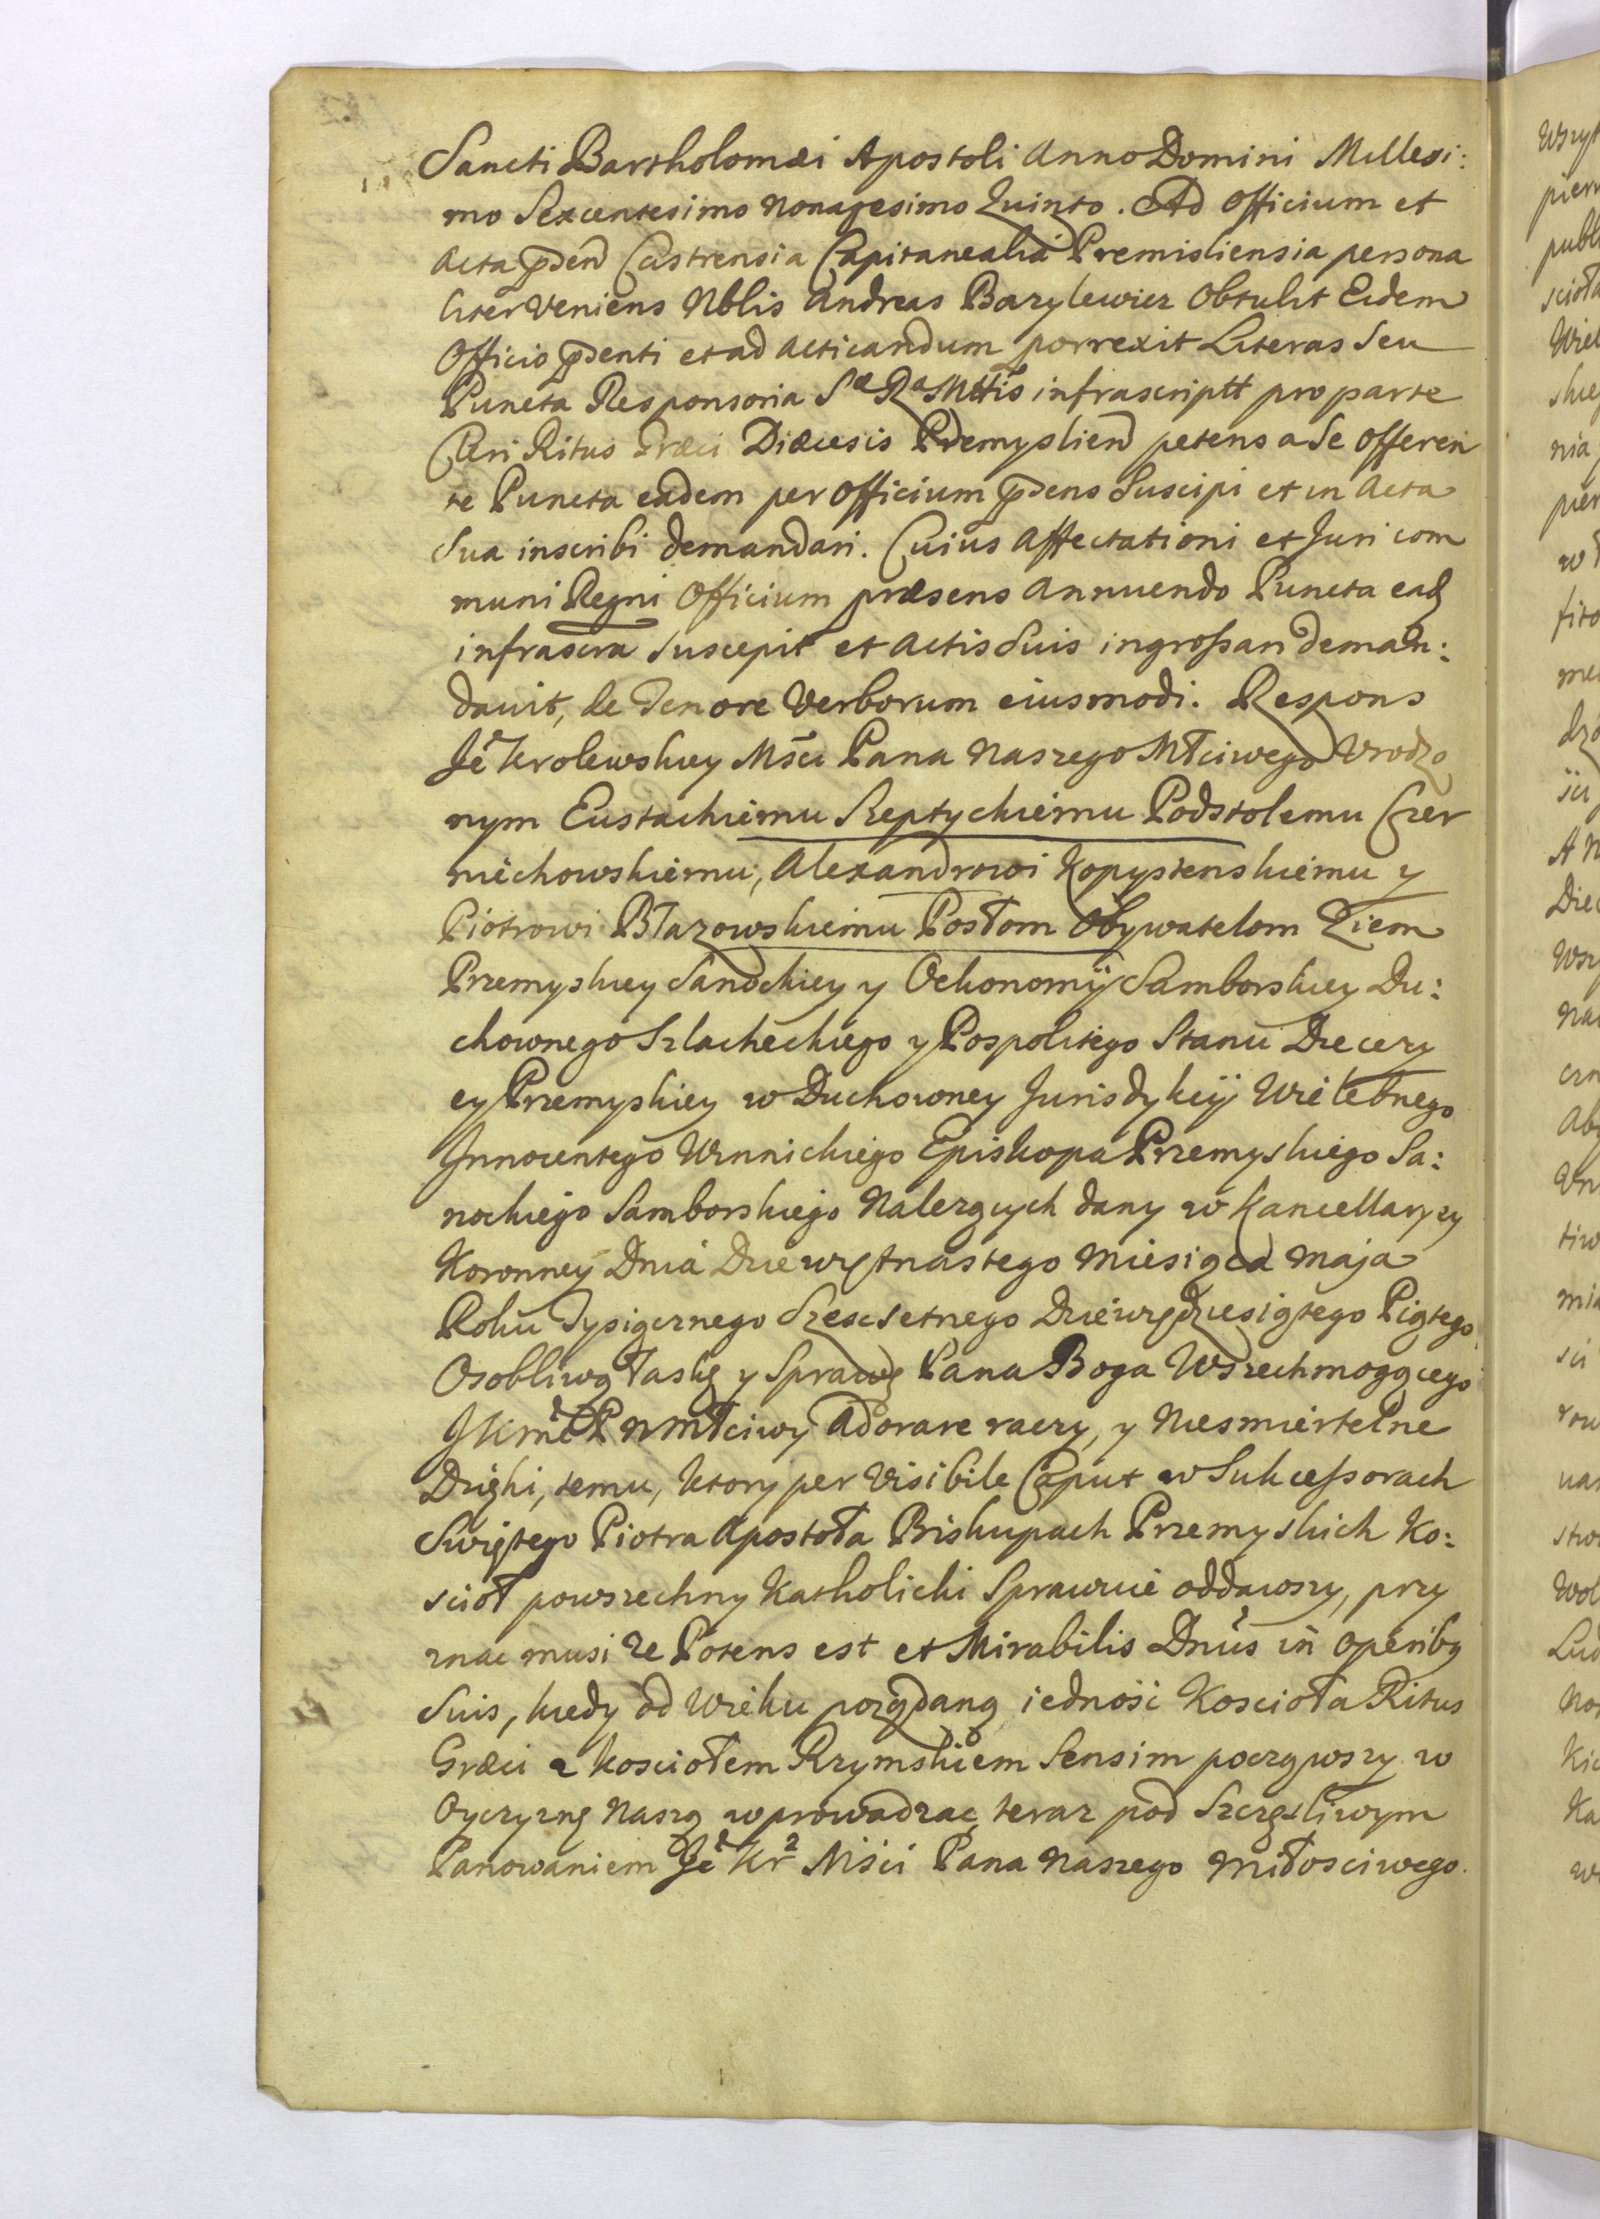 Sancti Bartholomæi Apostoli Anno Domini Millesi:
mo Sexcentesimo Nonagesimo Quinto. Ad Officium et
Acta p̄sen Castrensia Capitanealia Premisliensia persona
liter Veniens Nblis Andreas Barylewicz Obtulit Eidem
Officio p̄senti et ad Acticandum porrexit Literas Seu
Puncta Responsoria Sæ Ræ Mttis infrascriptt pro parte
Cleri Ritus Græci Diæcesis Premyslien petens a Se Offeren
te Puncta eadem per Officium p̄sens Suscipi et in Acta
Sua inscribi demandari. Cuius Affectationi et Juri com
muni Regni Officium præsens Annuendo Puncta eadq
infrascra Suscepit et Actis Suis ingrossari deman:
davit, de Tenore Verborum eiusmodi. Respons
Je° Krolewskiey Mści Pana Naszego Młciwego Vrodzo
nym Eustachiemu Szeptyckiemu Podstolemu Czer
niechowskiemu, Alexandrowi Kopystenskiemu y
Piotrowi Błazowskiemu Posłom Obywatelom Ziem
Przemyskiey Sanockiey y Oekonomÿ Samborskiey Du:
chownego Szlacheckiego y Pospolitego Stanu Diecezy
ey Przemyskiey w Duchowney Jurisdykcÿ Wielebnego
Jnnocentego Winnickiego Episkopa Przemyskiego Sa:
nockiego Samborskiego Nalezących dany w Kancellaryey
Koronney Dnia Dziewiętnastego Miesiąca Maja
Roku Tysiącznego Szescsetnego Dziewiędziesiątego Piątego
Osobliwą Łaskę y Sprawę Pana Boga Wszechmogącego
JKmć P N Młciwy Adorare raczy, y Niesmiertelne
Dzięki, temu, ktory per Visibile Caput w Sukcessorach
Swiętego Piotra Apostoła Biskupach Rzymskich Ko:
scioł powszechny Katholicki Sprawnie oddawszy, przy
znac musi ze Potens est et Mirabilis Dnūs in operibq
Suis, kiedy od Wieku pożądaną iedność Koscioła Ritus
Græci z kosciołem Rzymskiem Sensim począwszy w
Oyczyznę Naszą wprowadzac, teraz pod Szczęsliwym
Panowaniem Je° Kr² Mści Pana Naszego Miłosciwego.